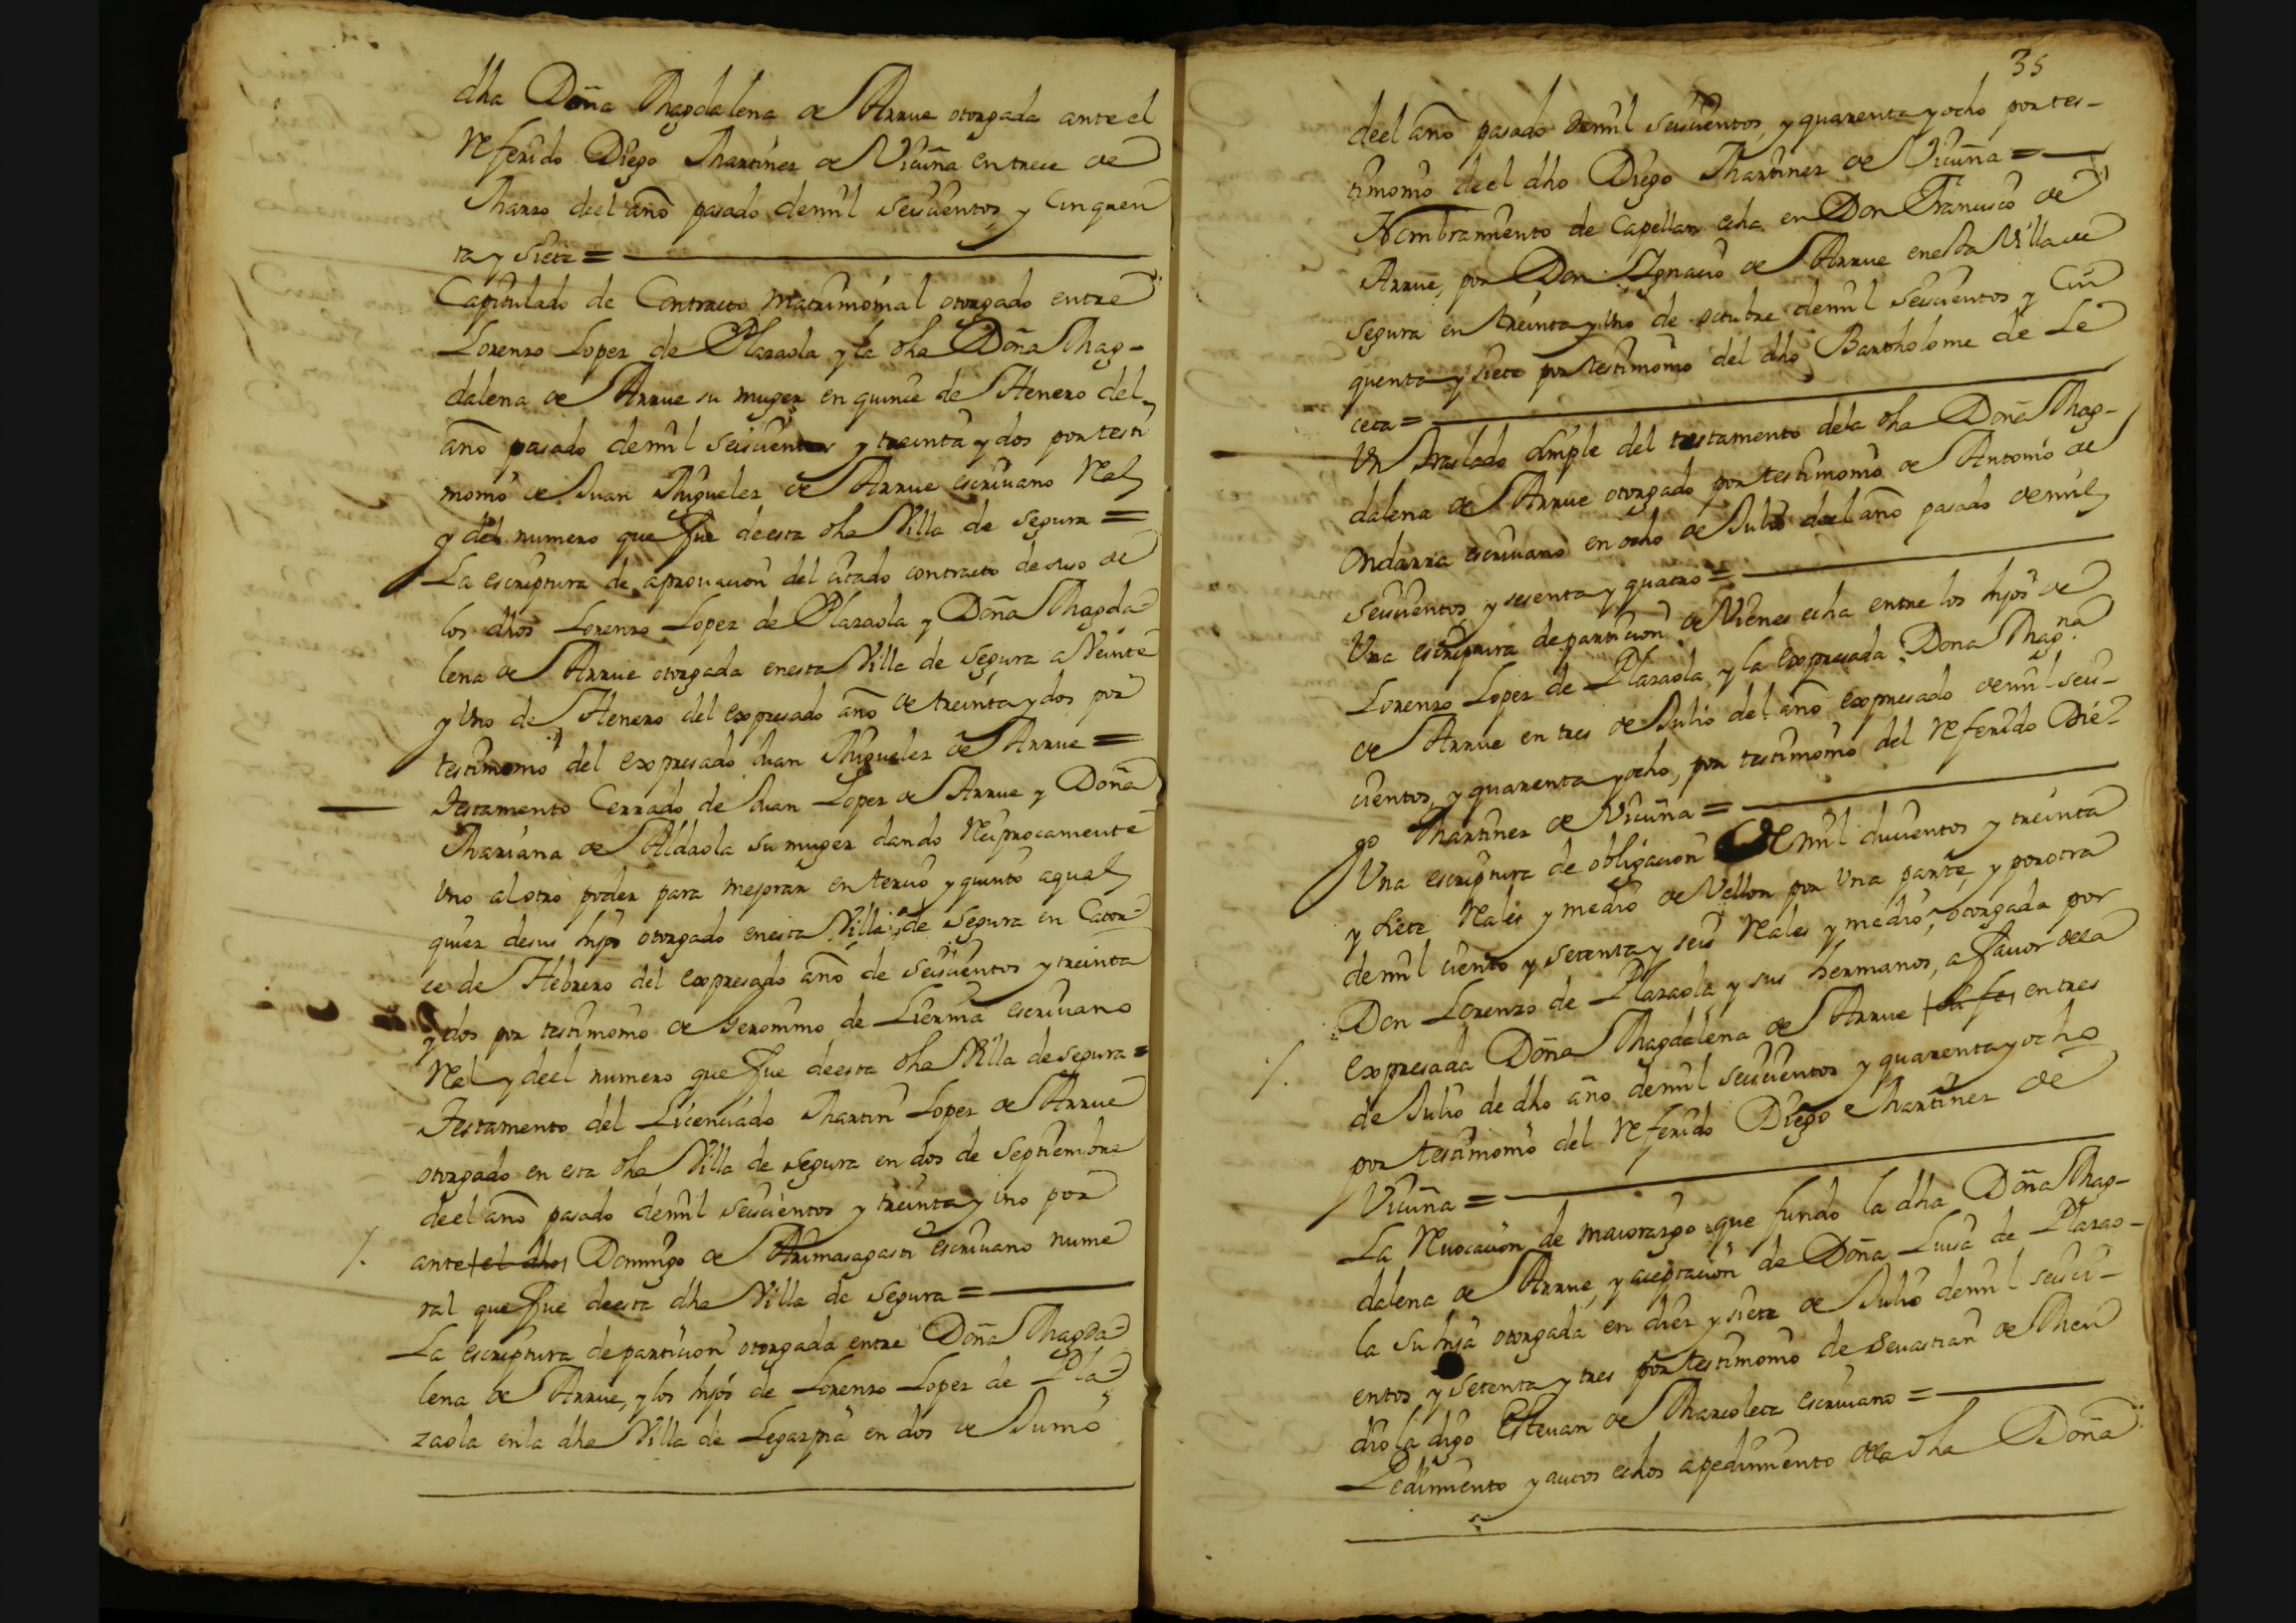 dha Doña Magdalena de Arrue otorgada ante el
Referido Diego Martinez de Vicuña en trece de
Marzo deel año pasado demil seiscientos y cinquen
ta y siete =
Capitulado de Contracto matrimonial otorgado entre
Lorenzo Lopez de Plazaola y la dha Doña Mag-
dalena de Arrue su muger en quince de Henero del
año pasado demil seiscientos y treinta y dos por testi
monio de Juan Miguelez de Arrue escriuano Real
y del numero que fue deesta dha Villa de Segura =
La escriptura de aprouacion del citado contracto de suso de
los dhos Lorenzo Lopez de Plazaola y Doña Magda-
lena de Arrue otorgada enesta Villa de Segura a Veinte
y Uno de Henero del expresado año de treinta y dos por
testimonio del expresado Juan Miguelez de Arrue =
Testamento Cerrado de Juan Lopez de Arrue y Doña
Mariana de Aldaola su muger dando Reciprocamente
Uno al otro poder para mejorar en tercio y quinto aqual
quier desus hijos otorgado enesta Villa de Segura en Cator-
ce de Hebrero del expresado año de seiscientos y treinta
y dos por testimonio de Geronimo de Lierma escriuano
Real y deel numero que fue deesta dha Villa de Segura =
Testamento del Licenciado Martin Lopez de Arrue
otorgado en esta dha Villa de Segura en dos de Septiembre
deel año pasado demil seiscientos y treinta y uno por
/. ante el dho Domingo de Arimasagasti escriuano nume
ral que fue deesta dha Villa de Segura =
La escriptura departicion otorgada entre Doña Magda-
lena de Arrue, y los hijos de Lorenzo Lopez de Pla-
zaola enla dha Villa de Legazpia en dos de Junio
35
deel año pasado demil seiscientos, y quarenta y ocho por tes-
timonio deel dho Diego Martinez de Vicuña =
Nombramiento de Capellan echa en Don Francisco de
Arrue, por Don Ignacio de Arrue enesta Villa de
Segura en treinta y Uno de octubre demil seiscientos y Cin
quenta y siete por testimonio del dho Bartholome de Le
ceta =
Un traslado simple del testamento dela dha Doña Mag-
dalena de Arrue otorgado por testimonio de Antonio de
Ondarra escriuano en ocho de Julio deel año pasado demil
seiscientos, y sesenta y quatro =
Una escriptura departicion de Vienes echa entre los hijos de
Lorenzo Lopez de Plazaola, y la expresada Dona Mag.na
de Arrue en tres de Julio del año expresado demil seis-
cientos, y quarenta y ocho, por testimonio del Referido Die-
go Martinez de Vicuña =
Una escriptura de obligacion de mil ducientos y treinta
y siete Reales y medio de Vellon por Una parte, y por otra
demil ciento y setenta y seis Reales y medio, otorgada por
Don Lorenzo de Plazaola y sus hermanos, a fauor dela
/. expresada Doña Magdalena de Arrue en tres
de Julio de dho año demil seiscientos y quarenta y ocho
por testimonio del Referido Diego Martinez de
Vicuña =
La Reuocacion de maiorazgo que fundo la dha Doña Mag-
dalena de Arrue, y aceptacion de Doña Luisa de Plazao-
la su hija otorgada en diez y siete de Julio demil seisci-
entos y setenta y tres por testimonio de Seuastian de Men
diola digo Esteuan de Marcoleta escriuano =
Pedimiento y autos echos apedimiento dela dha Doña